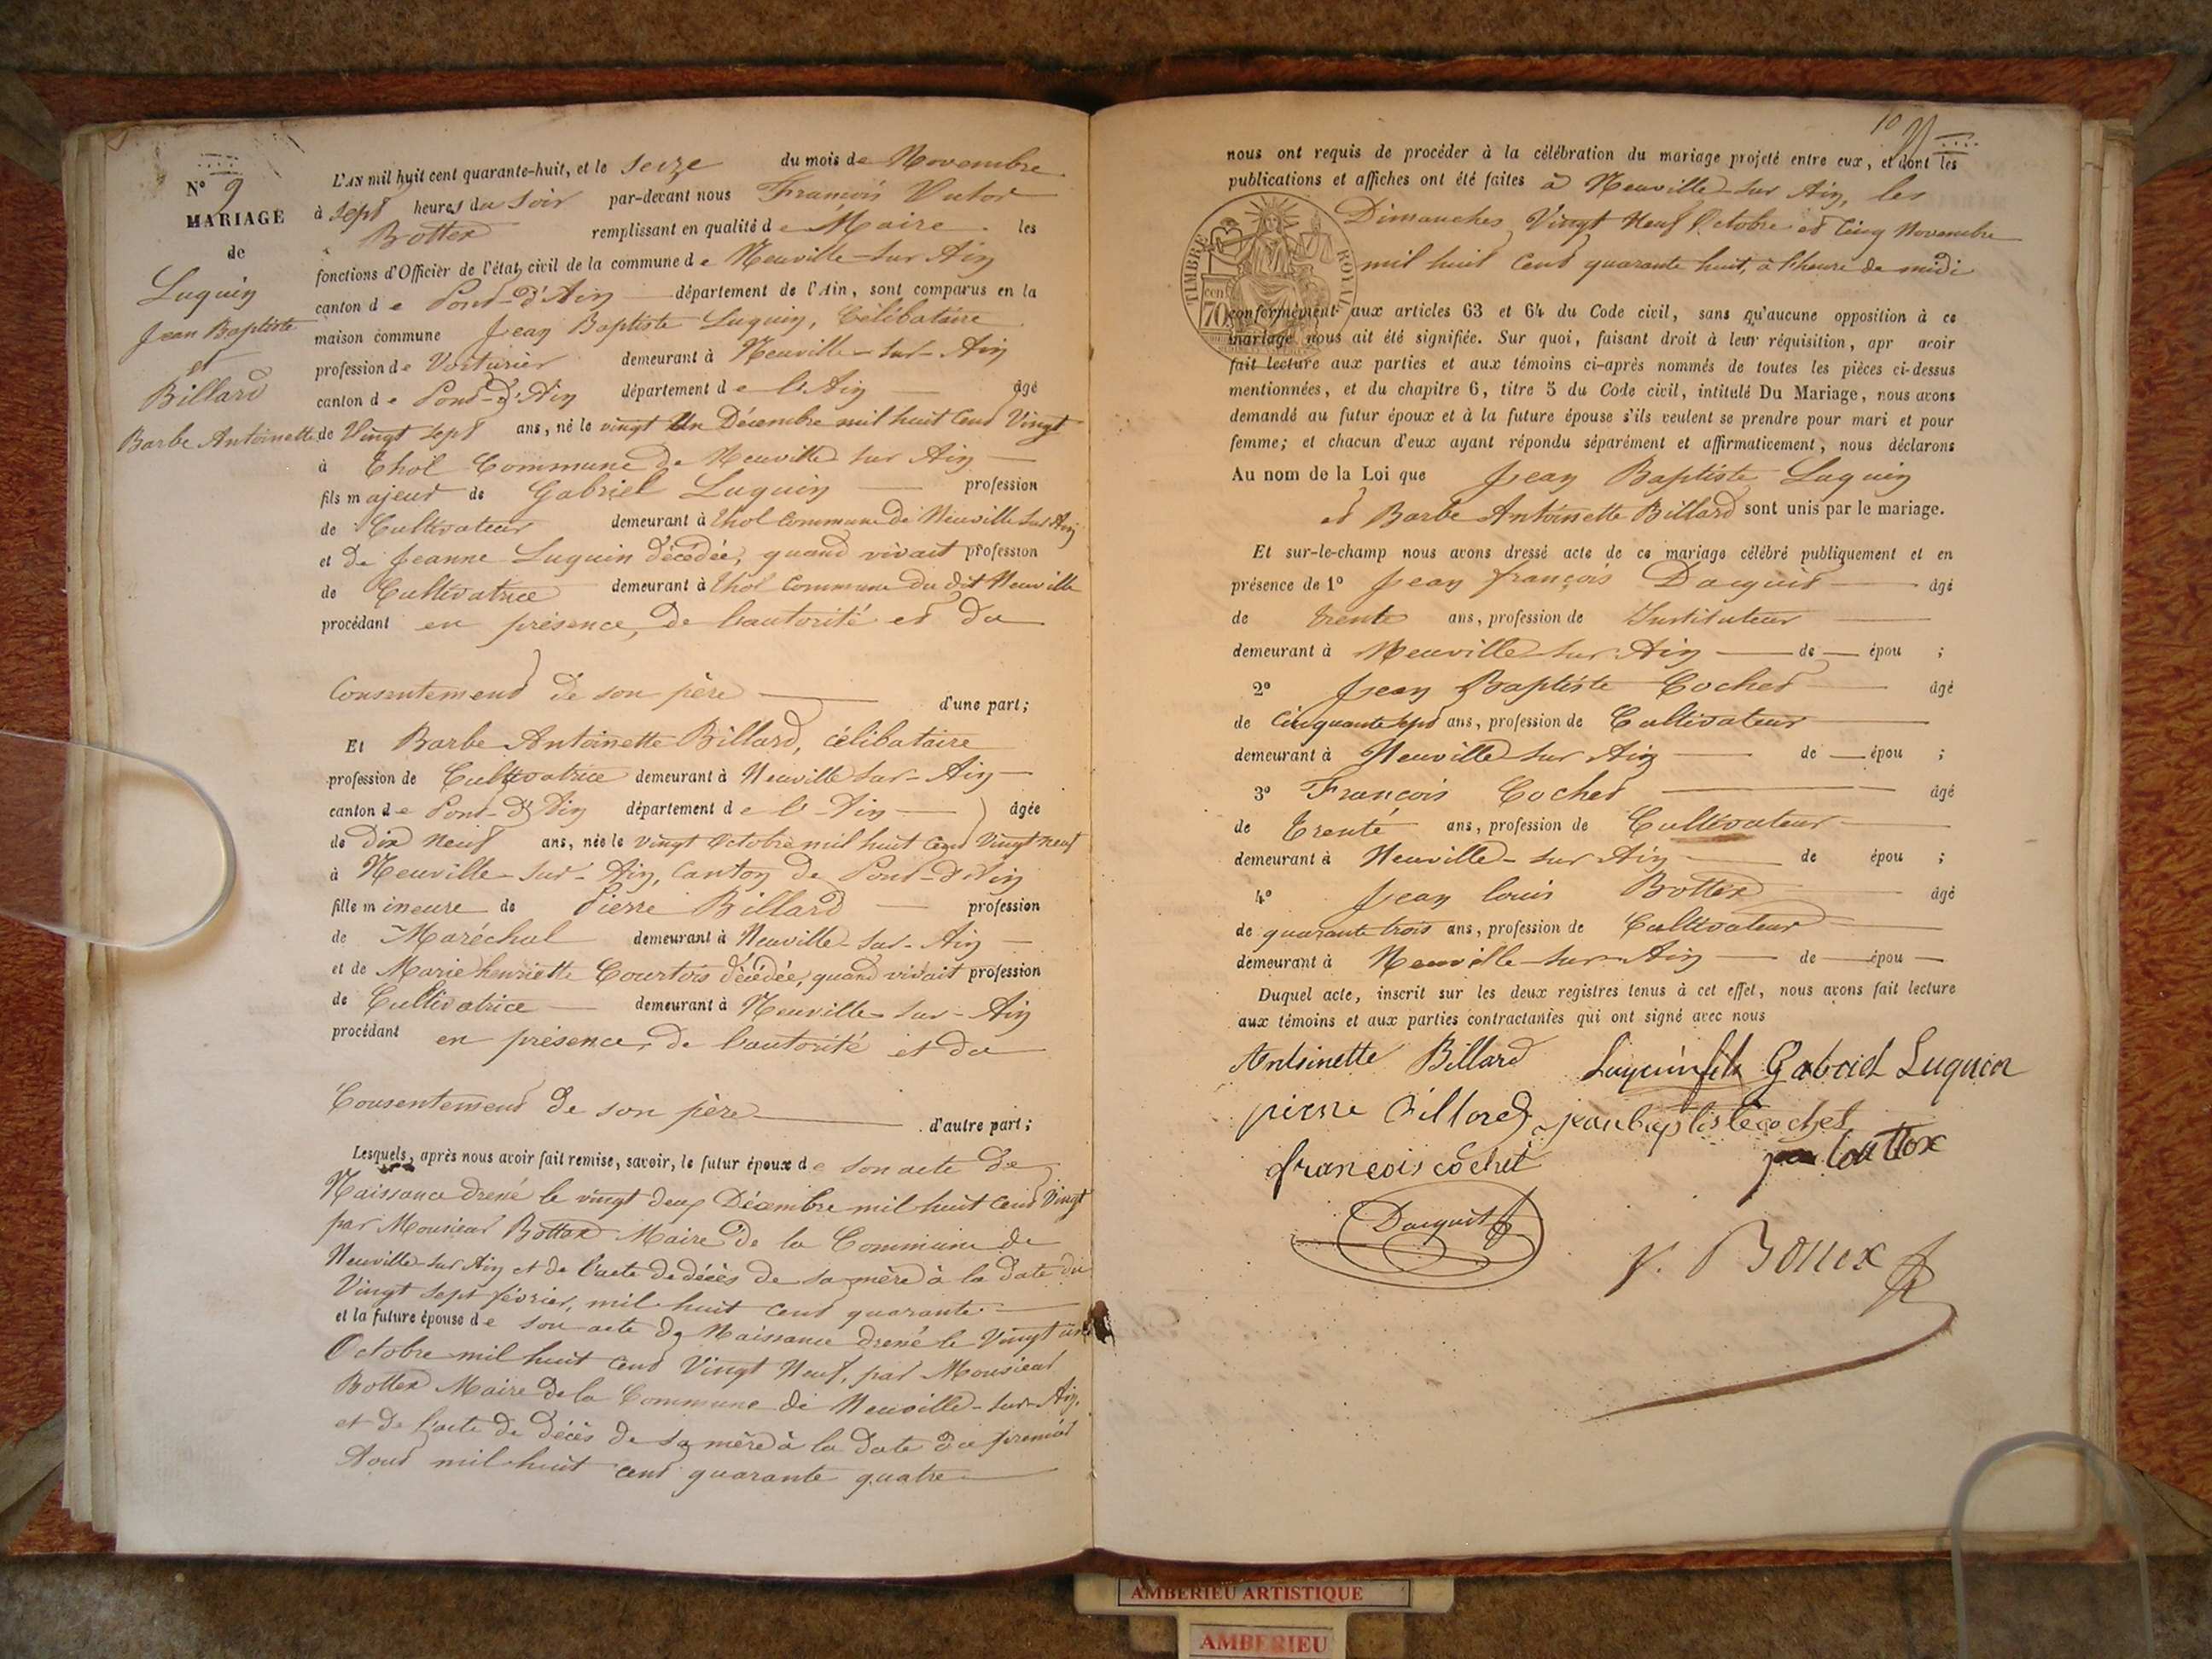 N° 9
MARIAGE
de
Luquin
Jean Baptiste
et
Billard
Barbe Antoinette
L'AN mil huit cent quarante-huit, et le seize du mois de Novembre
à sept heures du soir par-devant nous François Victor
Bottex remplissant en qualité de Maire les
fonctions d'Officier de l'état civil de la commune de Neuville-sur Ain
canton de Pont-d'Ain département de l'Ain, sont comparus en la
maison commune Jean Baptiste Luquin, Célibataire
profession de Voiturier demeurant à Neuville-sur-Ain
canton de Pont-d'Ain département de l'Ain âgé
de Vingt sept ans, né le vingt Un Décembre mil huit Cent Vingt
à Thol Commune de Neuville sur Ain
fils majeur de Gabriel Luquin profession
de Cultivateur demeurant à Thol commune de Neuville sur Ain
et de Jeanne Luquin décédée, quand vivait profession
de Cultivatrice demeurant à Thol Commune du dit Neuville
procédant en présence, de l'autorité et du
Consentement de son père d'une part;
Et Barbe Antoinette Billard, célibataire
profession de Cultivatrice demeurant à Neuville sur-Ain
canton de Pont-d'Ain département de l'Ain âgée
de Dix neuf ans, née le vingt Octobre mil huit Cent Vingt neuf
à Neuville-sur-Ain, Canton de Pont-d'Ain
fille mineure de Pierre Billard profession
de Maréchal demeurant à Neuville-sur-Ain
et de Marie henriette Courtois décédée, quand vivait profession
de Cultivatrice demeurant à Neuville-sur-Ain
procédant en présence, de l'autorité et du
Consentement de son père d'autre part;
Lesquels, après nous avoir fait remise, savoir, le futur époux de son acte de
Naissance dressé le vingt deux Décembre mil huit Cent Vingt
par Monsieur Bottex Maire de la Commune de
Neuville-sur Ain et de l'acte de décès de sa mère à la date du
Vingt sept février, mil huit cent quarante
et la future épouse de son acte de Naissance dressé le Vingt un
Octobre mil huit cent Vingt Neuf, par Monsieur
Bottex Maire de la Commune de Neuville-sur-Ain,
et de l'acte de décès de sa mère à la date du premier
Aout mil huit cent quarante quatre
10
nous ont requis de procéder à la célébration du mariage projeté entre eux, et dont les
publications et affiches ont été faites à Neuville-sur Ain, les
Dimanches Vingt Neuf Octobre et Cinq Novembre
mil huit Cent quarante huit, à l'heure de midi
TIMBRE ROYAL
70 cent
conformément aux articles 63 et 64 du Code civil, sans qu'aucune opposition à ce
mariage nous ait été signifiée. Sur quoi, faisant droit à leur réquisition, apr avoir
fait lecture aux parties et aux témoins ci-après nommés de toutes les pièces ci-dessus
mentionnées, et du chapitre 6, titre 5 du Code civil, intitulé Du Mariage, nous avons
demandé au futur époux et à la future épouse s'ils veulent se prendre pour mari et pour
femme; et chacun d'eux ayant répondu séparément et affirmativement, nous déclarons
Au nom de la Loi que Jean Baptiste Luquin
et Barbe Antoinette Billard sont unis par le mariage.
Et sur-le-champ nous avons dressé acte de ce mariage célébré publiquement et en
présence de 1° Jean françois Dacquit âgé
de trente ans, profession de Instituteur
demeurant à Neuville sur Ain de épou ;
2° Jean Baptiste Cochet âgé
de Cinquante sept ans, profession de Cultivateur
demeurant à Neuville sur Ain de épou ;
3° François Cochet âgé
de trente ans, profession de Cultivateur
demeurant à Neuville-sur Ain de épou ;
4° Jean louis Bottex âgé
de quarante trois ans, profession de Cultivateur
demeurant à Neuville-sur-Ain de épou
Duquel acte, inscrit sur les deux registres tenus à cet effet, nous avons fait lecture
aux témoins et aux parties contractantes qui ont signé avec nous
Antoinette Billard Luquin fils Gabriel Luquin
pierre Billard jean baptiste cochet
françois cochet Bottox
Dacquit
V. Bottex
AMBERIEU ARTISTIQUE
AMBERIEU